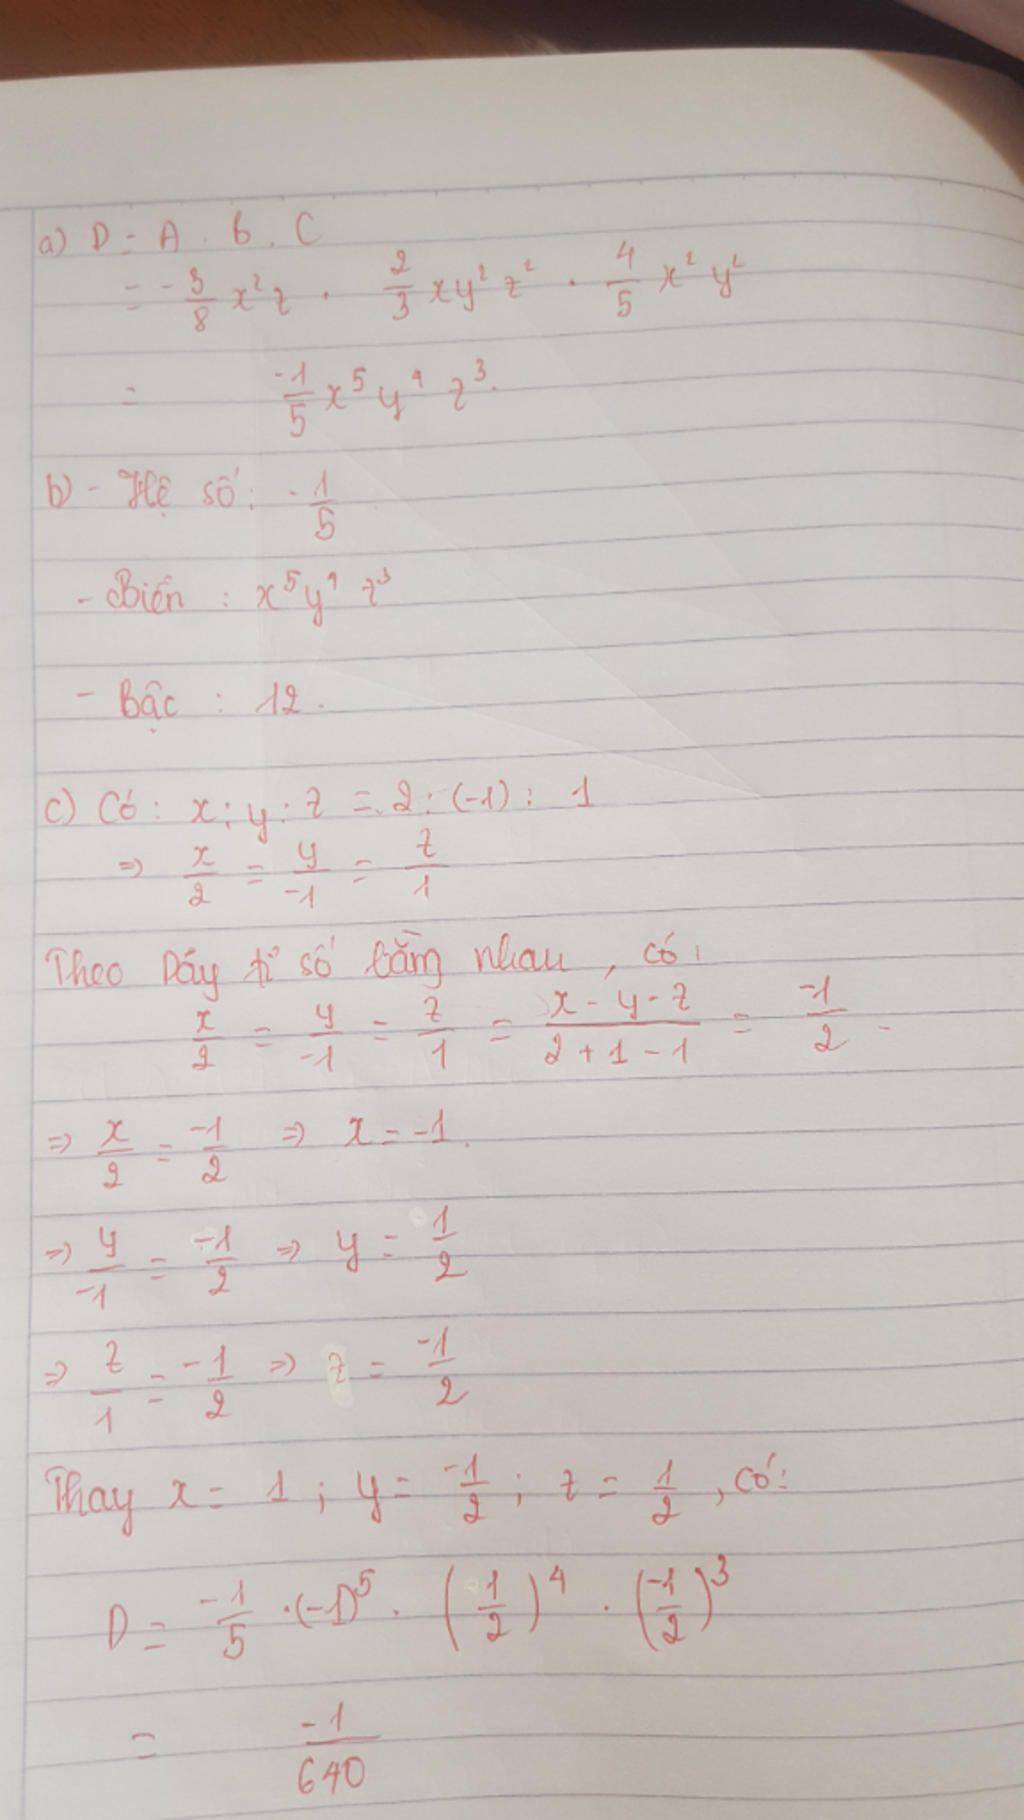 a) D = A . B . C
= -3/8 x²z . 2/3 xy²z² . 4/5 x²y²
= -1/5 x⁵y⁴z³.
b) - Hệ số : -1/5
- Biến : x⁵y⁴z³
- Bậc : 12.
c) Có : x : y : z = 2 : (-1) : 1
=> x/2 = y/-1 = z/1
Theo Dãy tỉ số bằng nhau, có :
x/2 = y/-1 = z/1 = (x - y - z)/(2 + 1 - 1) = -1/2 .
=> x/2 = -1/2 => x = -1.
=> y/-1 = -1/2 => y = 1/2
=> z/1 = -1/2 => z = -1/2
Thay x = 1 ; y = -1/2 ; z = 1/2 , có :
D = -1/5 . (-1)⁵ . (1/2)⁴ . (-1/2)³
= -1/640